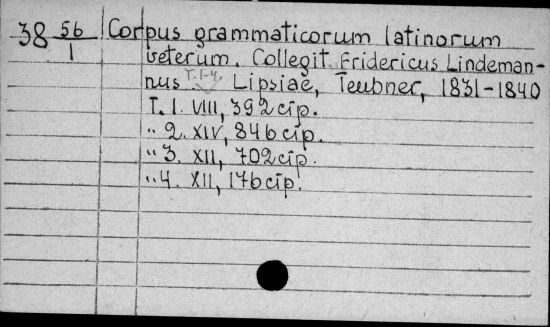 38 56 Corpus grammaticorum latinorum
1 veterum. Collegit Fridericus Lindeman-
nus T.1-4. Lipsiae, Teubner, 1831-1840
T. 1. VIII, 392 cīp.
" 2. XIV, 846 cīp.
" 3. XII, 702 cīp.
" 4. XII, 176 cīp.